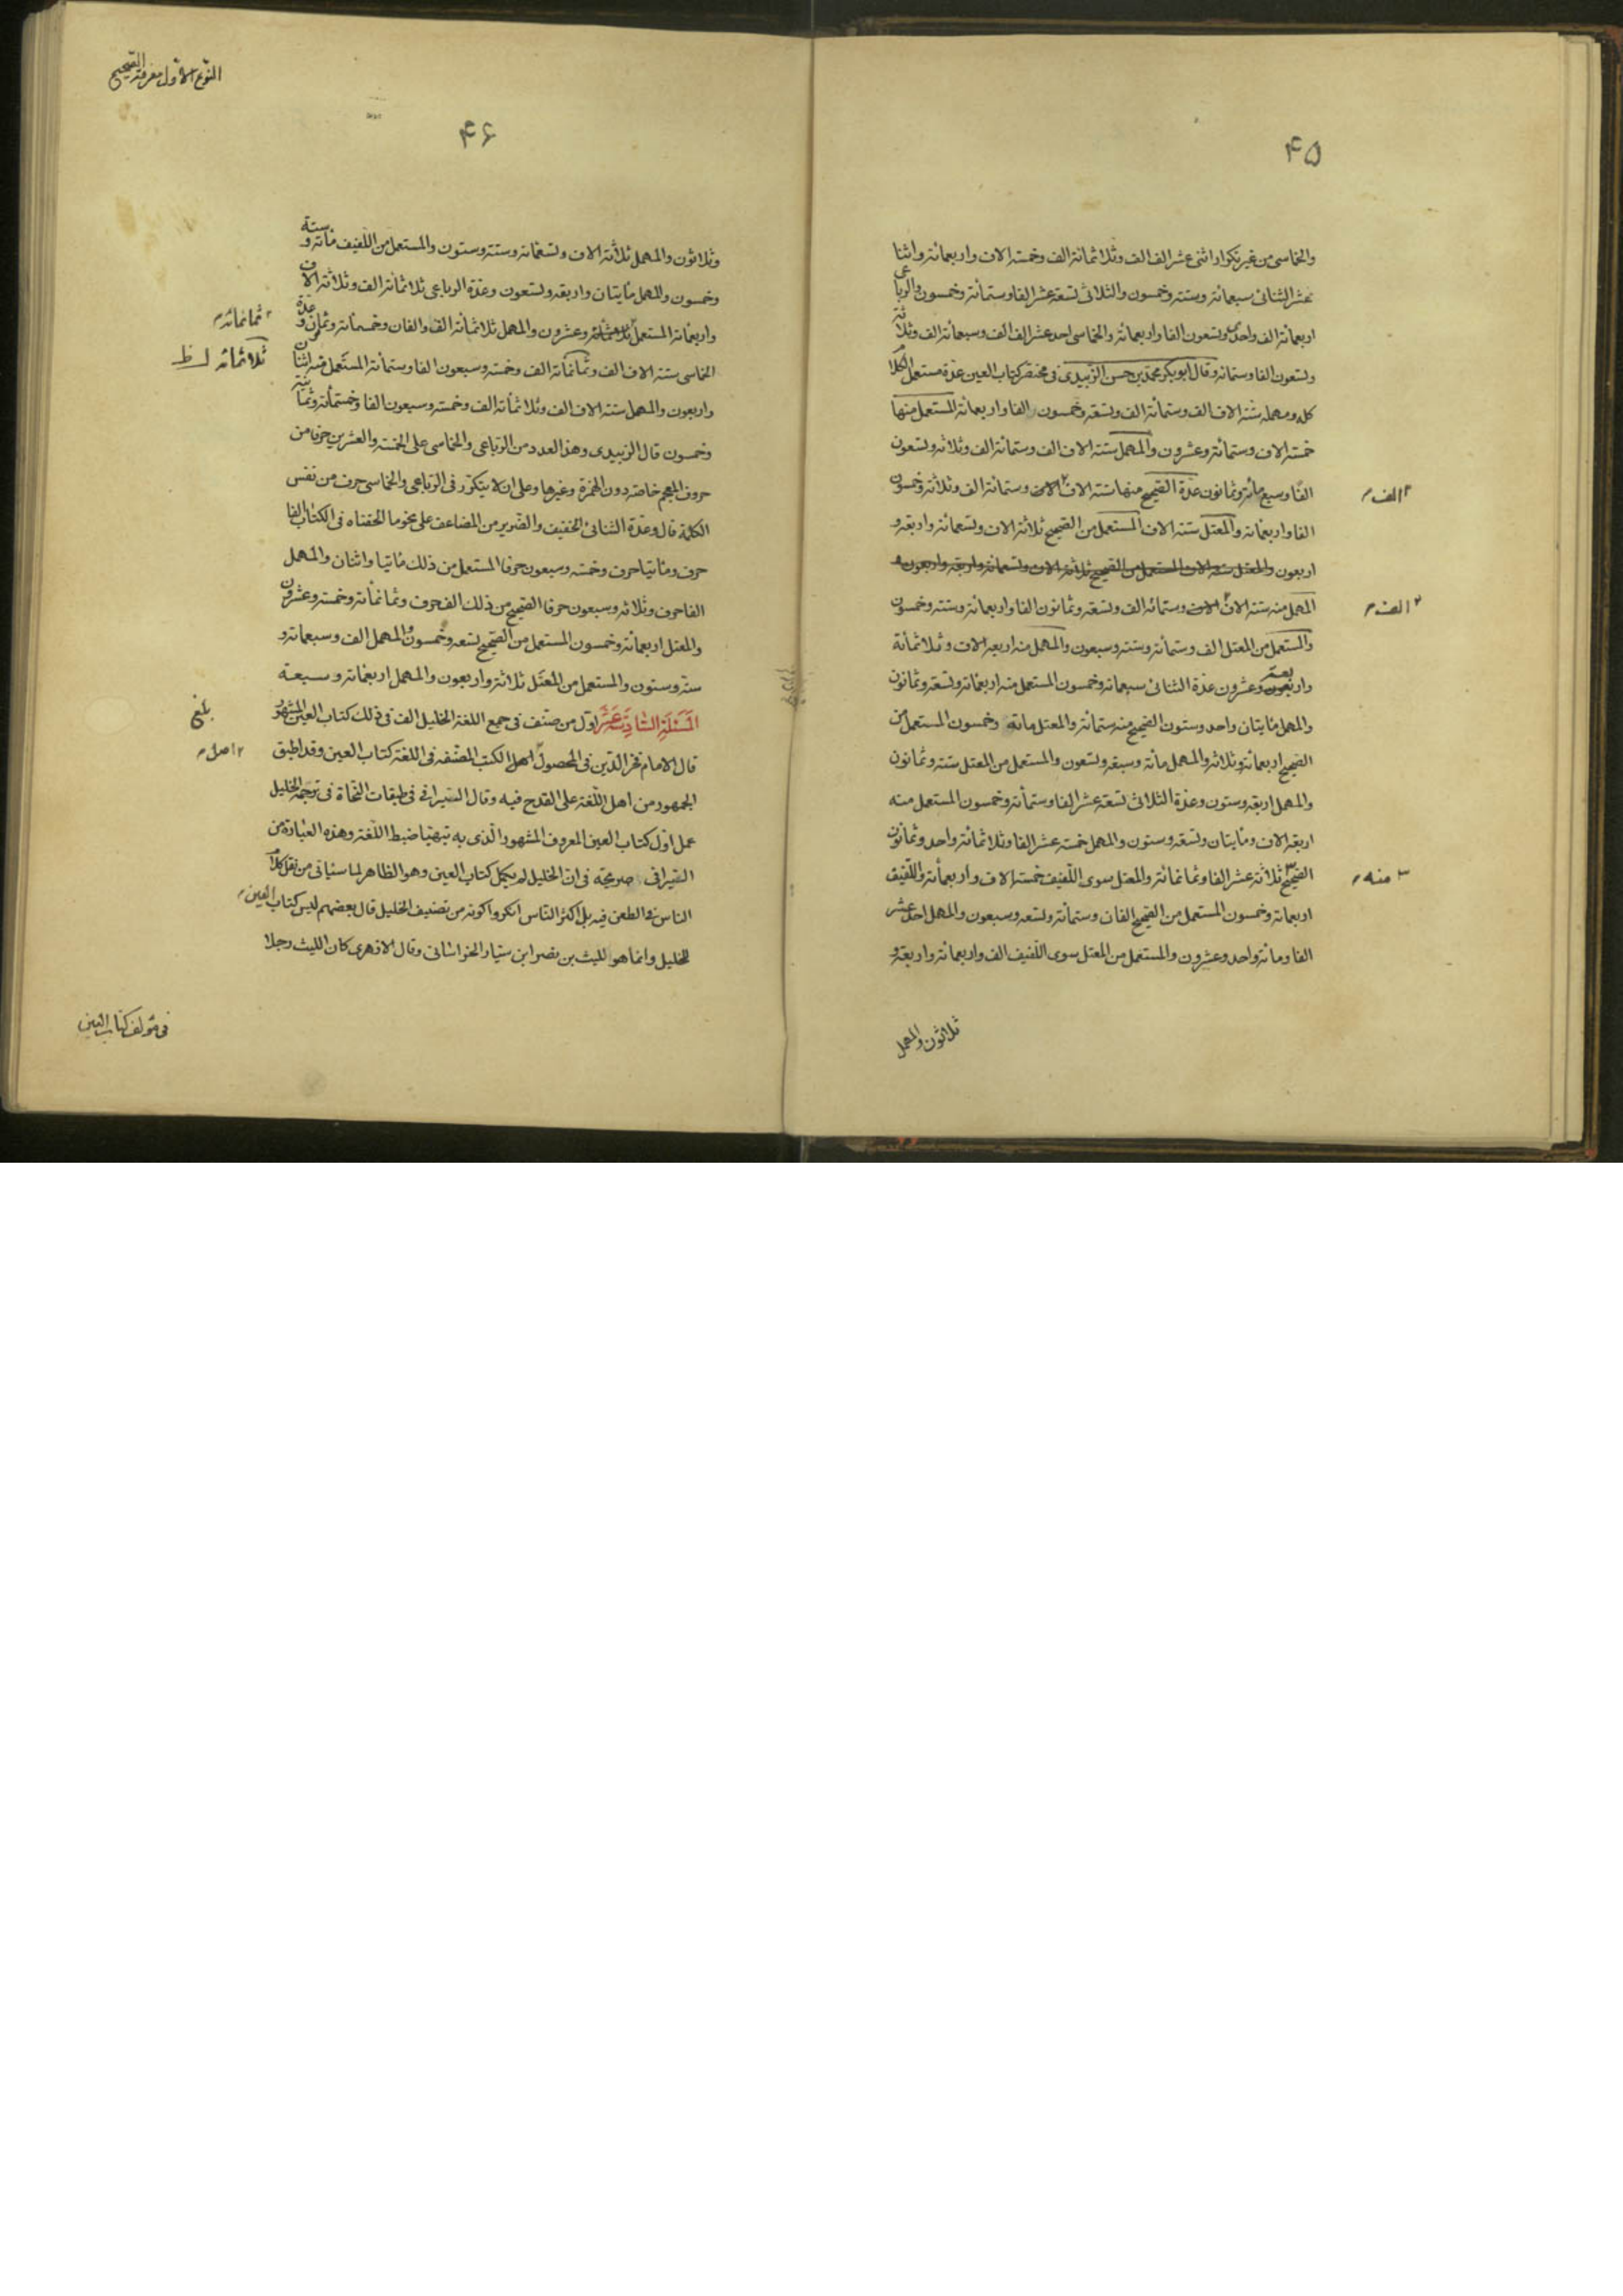 ۴۵
والخماسى من غير تكرار اثنى عشر الف الف وثلاثمائة الف وخمسة الاف واربعمائة واثنا
عشر الثنائى سبعمائة وستة وخمسون والثلاثى تسعة عشر الفا وستمائة وخمسون والرباعى
اربعمائة الف واحد وتسعون الفا واربعمائة والخماسى احد عشر الف الف وسبعمائة الف وثلاثة
وتسعون الفا وستمائة وقال ابو بكر محمد بن حسن الزبيدى فى مختصر كتاب العين عدة مستعمل الكلام
كله ومهمله ستة الاف الف وستمائة الف وتسعة وخمسون الفا واربعمائة المستعمل منها
خمسة الاف وستمائة وعشرون والمهمل ستة الاف الف وستمائة الف وثلاثة وتسعون
الفا وسبع مائة وثمانون عدة الصحيح منها ستة الاف الاف وستمائة الف وثلاثة وخمسون
الف
الفا واربعمائة والمعتل ستة الاف المستعمل من الصحيح ثلاثة الاف وتسعمائة واربعة و
اربعون والمعتل ستة الاف المستعمل من الصحيح ثلاثة الاف وتسعمائة واربعة واربعون
المهمل منه ستة الاف الاف وستمائة الف وتسعة وثمانون الفا واربعمائة وستة وخمسون
الف
والمستعمل من المعتل الف وستمائة وستة وسبعون والمهمل منه اربعة الاف وثلاثمائة
واربعة وعشرون عدة الثنائى سبعمائة وخمسون المستعمل منه اربعمائة وتسعة وثمانون
والمهمل مايتان واحد وستون الصحيح منه ستمائة والمعتل مائة وخمسون المستعمل من
الصحيح اربعمائة وثلاثة والمهمل مائة وسبعة وتسعون والمستعمل من المعتل ستة وثمانون
والمهمل اربعة وستون وعدة الثلاثى تسعة عشر الفا وستمائة وخمسون المستعمل منه
اربعة الاف ومايتان وتسعة وستون والمهمل خمسة عشر الفا وثلاثمائة واحد وثمانون
الصحيح ثلاثة عشر الفا وثمانمائة والمعتل سوى اللفيف خمسة الاف واربعمائة واللفيف
منه
اربعمائة وخمسون المستعمل من الصحيح الفان وستمائة وتسعة وسبعون والمهمل احد عشر
الفا ومائة واحد وعشرون والمستعمل من المعتل سوى اللفيف الف واربعمائة واربعة و
ثلاثون والمهمل
النوع الاول معرفة الصحيح
۴۶
وثلاثون والمهمل ثلاثة الاف وتسعمائة وستة وستون والمستعمل من اللفيف مائة وستة
وخمسون والمهمل مايتان واربعة وتسعون وعدة الرباعى ثلاثمائة الف وثلاثة الاف
واربعمائة المستعمل ثلاثمائة وعشرون والمهمل ثلاثمائة الف والفان وخمسمائة وثمانون وعدة
ثمانمائة
الخماسى ستة الاف الف وثمانمائة الف وخمسة وسبعون الفا وستمائة المستعمل منه اثنان
ثلاثمائة ظ
واربعون والمهمل ستة الاف الف وثلاثمائة الف وخمسة وسبعون الفا وخمسمائة وثمانية
وخمسون قال الزبيدى وهذا العدد من الرباعى والخماسى على الخمسة والعشرين حرفا من
حروف المعجم خاصة دون الهمزة وغيرها وعلى ان لا يتكرر فى الرباعى والخماسى حرف من نفس
الكلمة قال وعدة الثنائى الخفيف والضربين من المضاعف على نحو ما الحقناه فى الكتاب الفا
حرف ومائتا حرف وخمسة وسبعون حرفا المستعمل من ذلك مائتا واثنان والمهمل
الفا حرف وثلاثة وسبعون حرفا الصحيح من ذلك الف حرف وثمانمائة وخمسة وعشرون
والمعتل اربعمائة وخمسون المستعمل من الصحيح تسعة وخمسون والمهمل الف وسبعمائة و
ستة وستون والمستعمل من المعتل ثلاثة واربعون والمهمل اربعمائة وسبعة
المسئلة السادسة عشر اول من صنف فى جمع اللغة الخليل الف فى ذلك كتاب العين المشهور
بلغ
قال الامام فخر الدين فى المحصول اصل الكتب المصنفة فى اللغة كتاب العين وقد اطبق
اصل
الجمهور من اهل اللغة على القدح فيه وقال السيرافى فى طبقات النحاة فى ترجمة الخليل
عمل اول كتاب العين المعروف المشهور الذى به يتهيا ضبط اللغة وهذه العبارة من
السيرافى صريحة فى ان الخليل لم يكمل كتاب العين وهو الظاهر لما سيأتى من نقل كلام
الناس فى الطعن فيه بل اكثر الناس انكروا كونه من تصنيف الخليل قال بعضهم ليس كتاب العين
للخليل وانما هو لليث بن نصر ابن سيار الخراسانى وقال الازهرى كان الليث رجلا
فى مؤلف كتاب العين